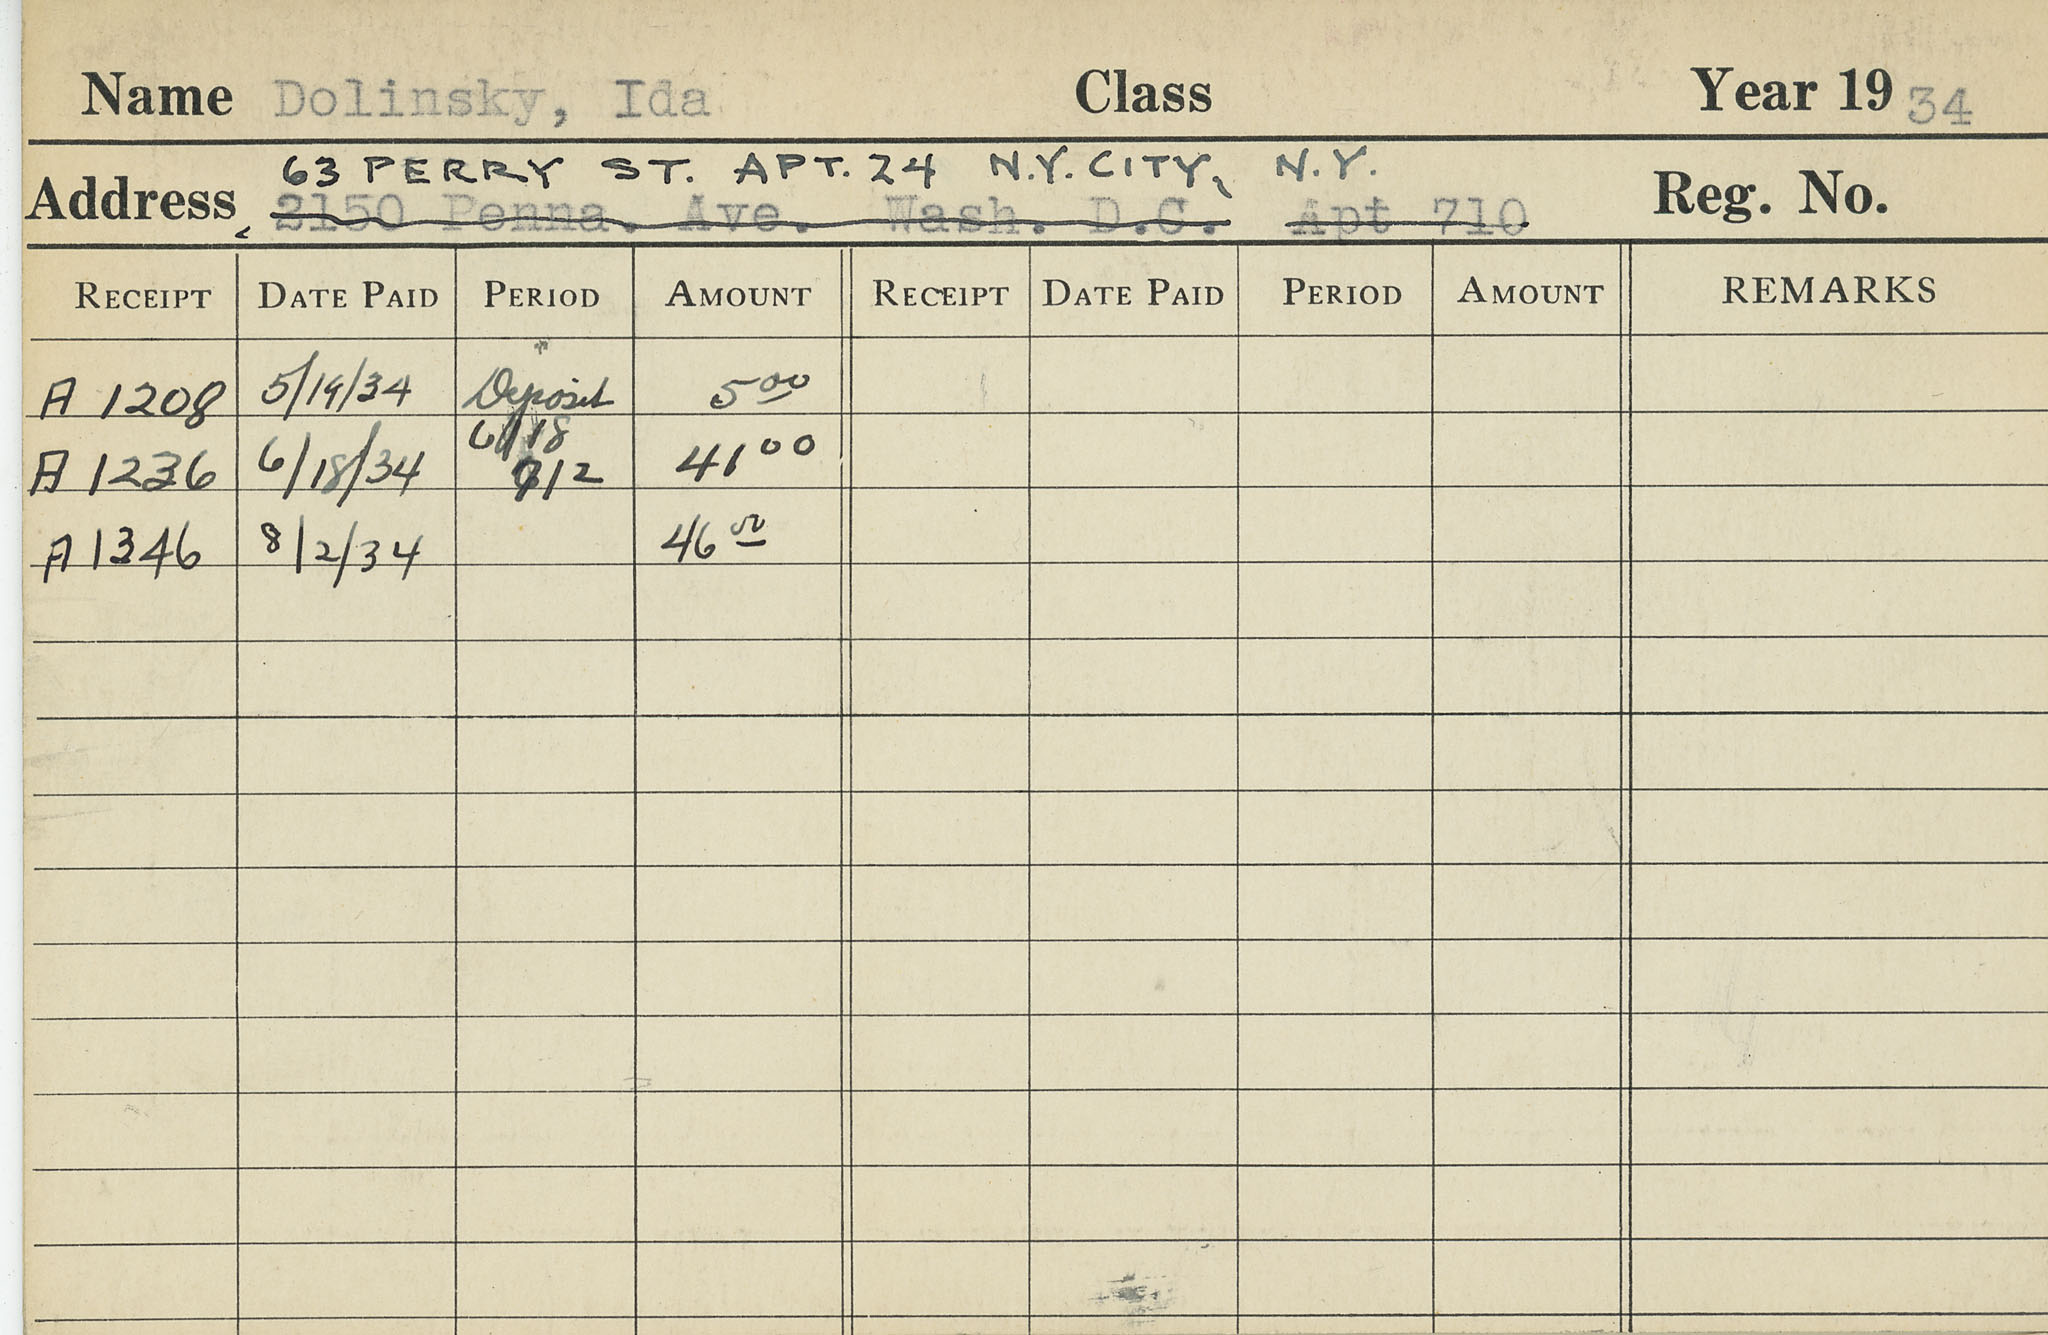 Name Dolinsky, Ida Class Year 19 34
63 PERRY ST. APT. 24 N.Y. CITY, N.Y.
Address 2150 Penna. Ave. Wash. D.C. Apt 710 Reg. No.
RECEIPT DATE PAID PERIOD AMOUNT RECEIPT DATE PAID PERIOD AMOUNT REMARKS
A 1208 5/19/34 Deposit 5 00
6/18
A 1236 6/18/34 41 00
A 1346 8/2/34 46 50